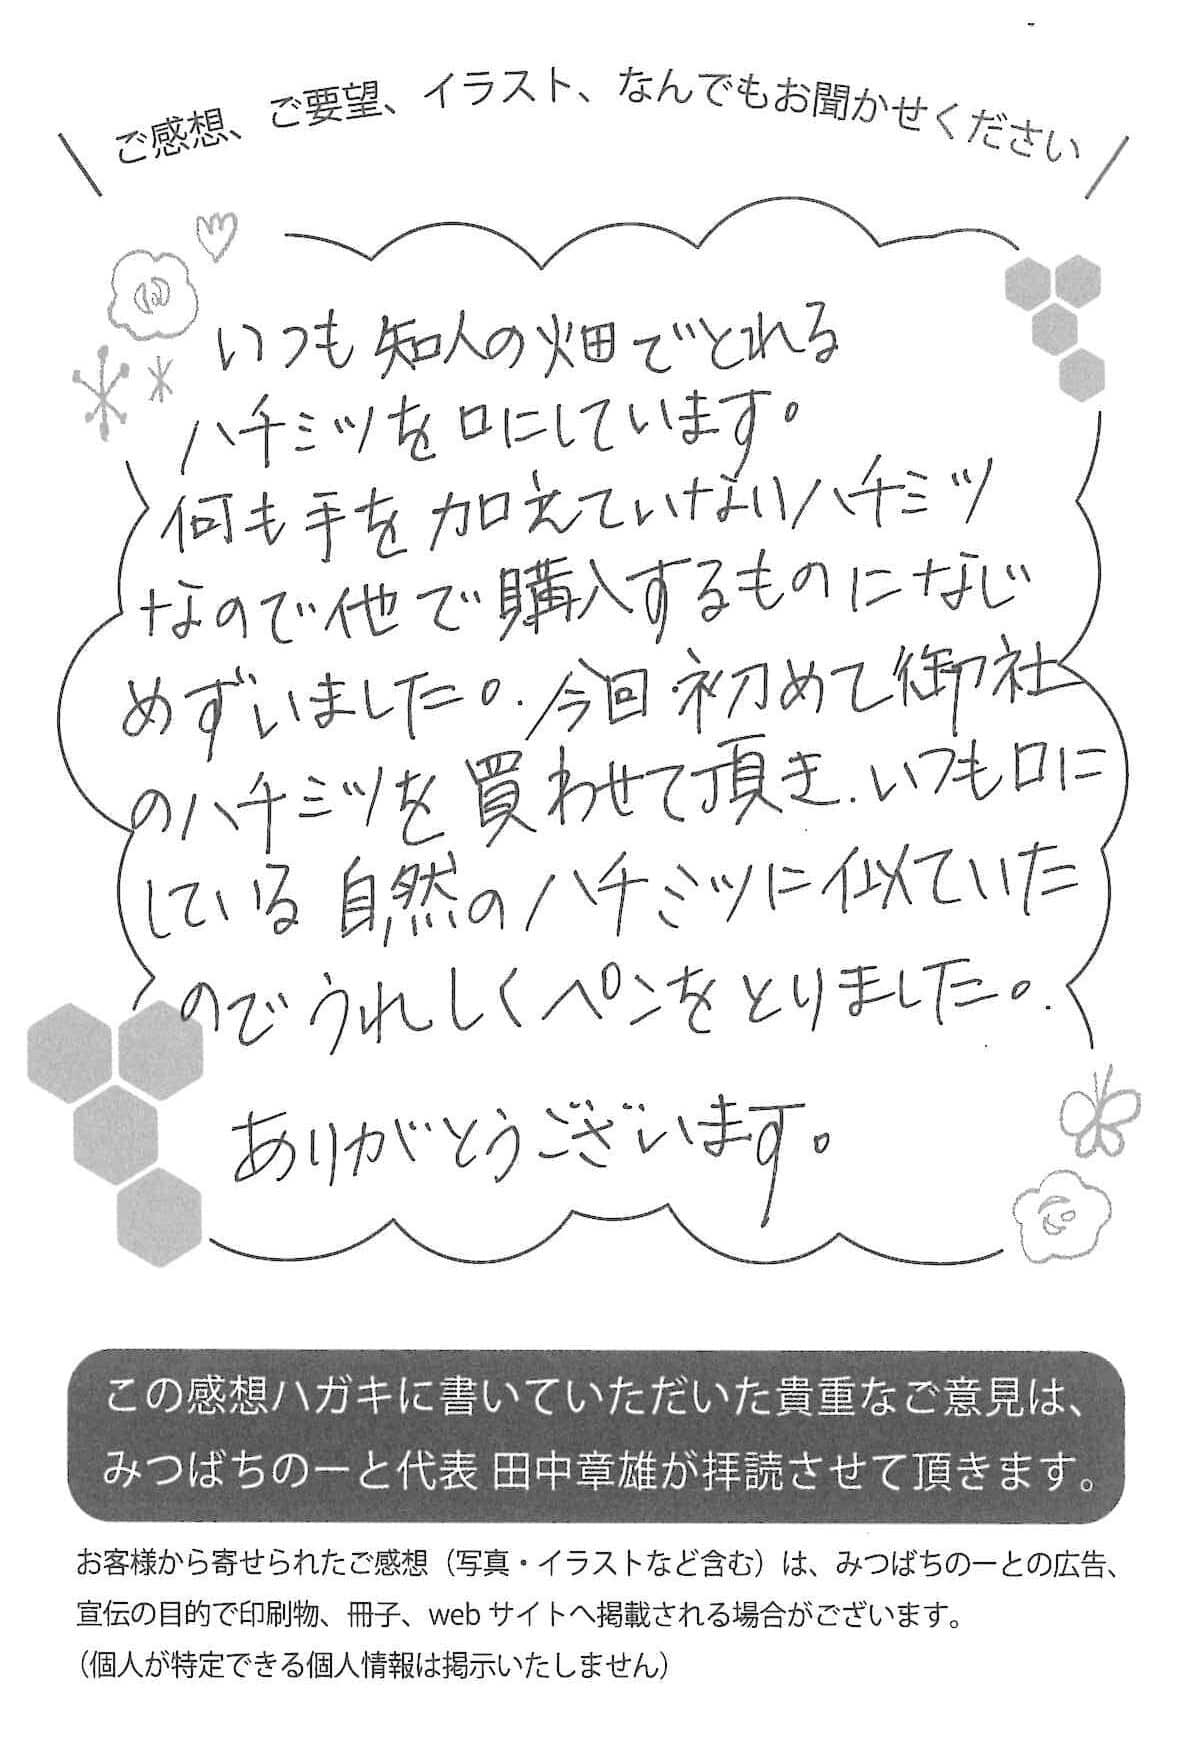 ご感想、ご要望、イラスト、なんでもお聞かせください
いつも知人の畑でとれる
ハチミツを口にしています。
何も手を加えていないハチミツ
なので他で購入するものになじ
めずいました。今回初めて御社
のハチミツを買わせて頂き、いつも口に
している自然のハチミツに似ていた
のでうれしくペンをとりました。
ありがとうございます。
この感想ハガキに書いていただいた貴重なご意見は、
みつばちのーと代表 田中章雄が拝読させて頂きます。
お客様から寄せられたご感想（写真・イラストなど含む）は、みつばちのーとの広告、
宣伝の目的で印刷物、冊子、web サイトへ掲載される場合がございます。
（個人が特定できる個人情報は掲示いたしません）